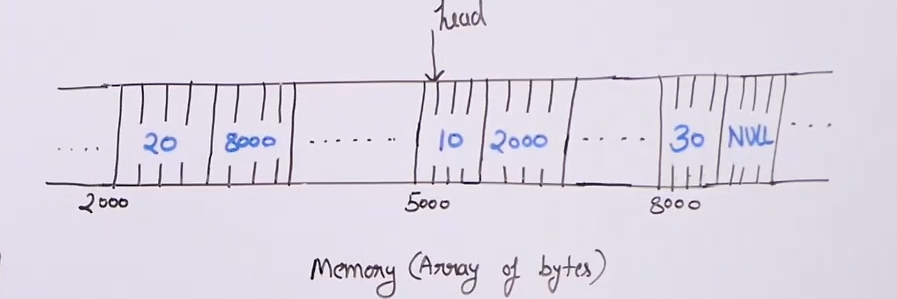 head
.... 20 8000 ........ 10 2000 ..... 30 NULL ...
2000 5000 8000
Memory (Array of bytes)